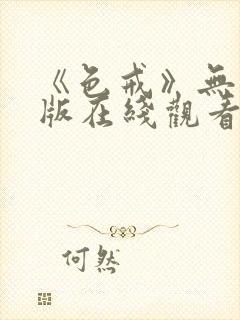 《色戒》無
版在綫觀看
何然